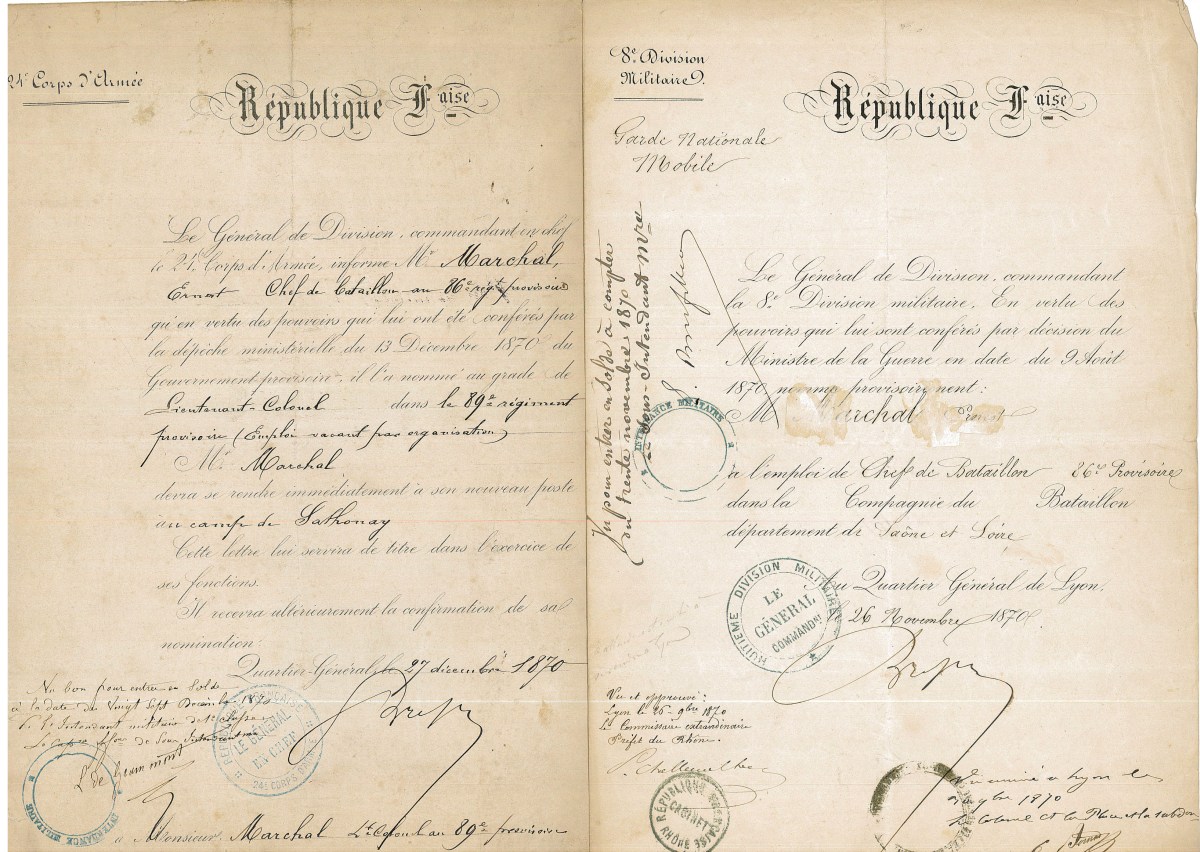 24e Corps d'Armée
République Faise
Le Général de Division, commandant en chef
le 24e Corps d'Armée, informe Mr Marchal,
Ernest Chef de bataillon au 86e régt provisoire
qu'en vertu des pouvoirs qui lui ont été conférés par
la dépêche ministérielle du 13 Décembre 1870 du
Gouvernement provisoire, il l'a nommé au grade de
Lieutenant-Colonel dans le 89e régiment
provisoire (Emploi vacant par organisation)
Mr Marchal
devra se rendre immédiatement à son nouveau poste
au camp de Sathonay
Cette lettre lui servira de titre dans l'exercice de
ses fonctions.
Il recevra ultérieurement la confirmation de sa
nomination.
Quartier-Général, le 27 décembre 1870
Vu bon pour entrer en solde
à la date du Vingt Sept Décembre 1870
l'Intendant militaire de
L. de Grammont
RÉPUBLIQUE FRANÇAISE
LE GÉNÉRAL
EN CHEF
24E CORPS D'ARMÉE
INTENDANCE MILITAIRE
à Monsieur Marchal Lt Colonel au 89e provisoire
8e Division
Militaire
République Faise
Garde Nationale
Mobile
Vu pour entrer en solde à compter
du trente novembre 1870
Le Sous-Intendant Mre
INTENDANCE MILITAIRE
Le Général de Division, commandant
la 8e Division militaire, En vertu des
pouvoirs qui lui sont conférés par décision du
Ministre de la Guerre en date du 9 Août
1870, nomme provisoirement :
M Marchal Ernest
à l'emploi de Chef de Bataillon 86e Provisoire
dans la Compagnie du Bataillon
département de Saône et Loire
Au Quartier Général de Lyon,
le 26 Novembre 1870
HUITIÈME DIVISION MILITAIRE
LE
GÉNÉRAL
COMMANDNT
Vu et approuvé :
Lyon le 26 9bre 1870
Le Commissaire extraordinaire
Préfet du Rhône.
RÉPUBLIQUE FRANÇAISE
CABINET
RHÔNE
Vu arrivé à Lyon le
9bre 1870
Le Colonel et la Place